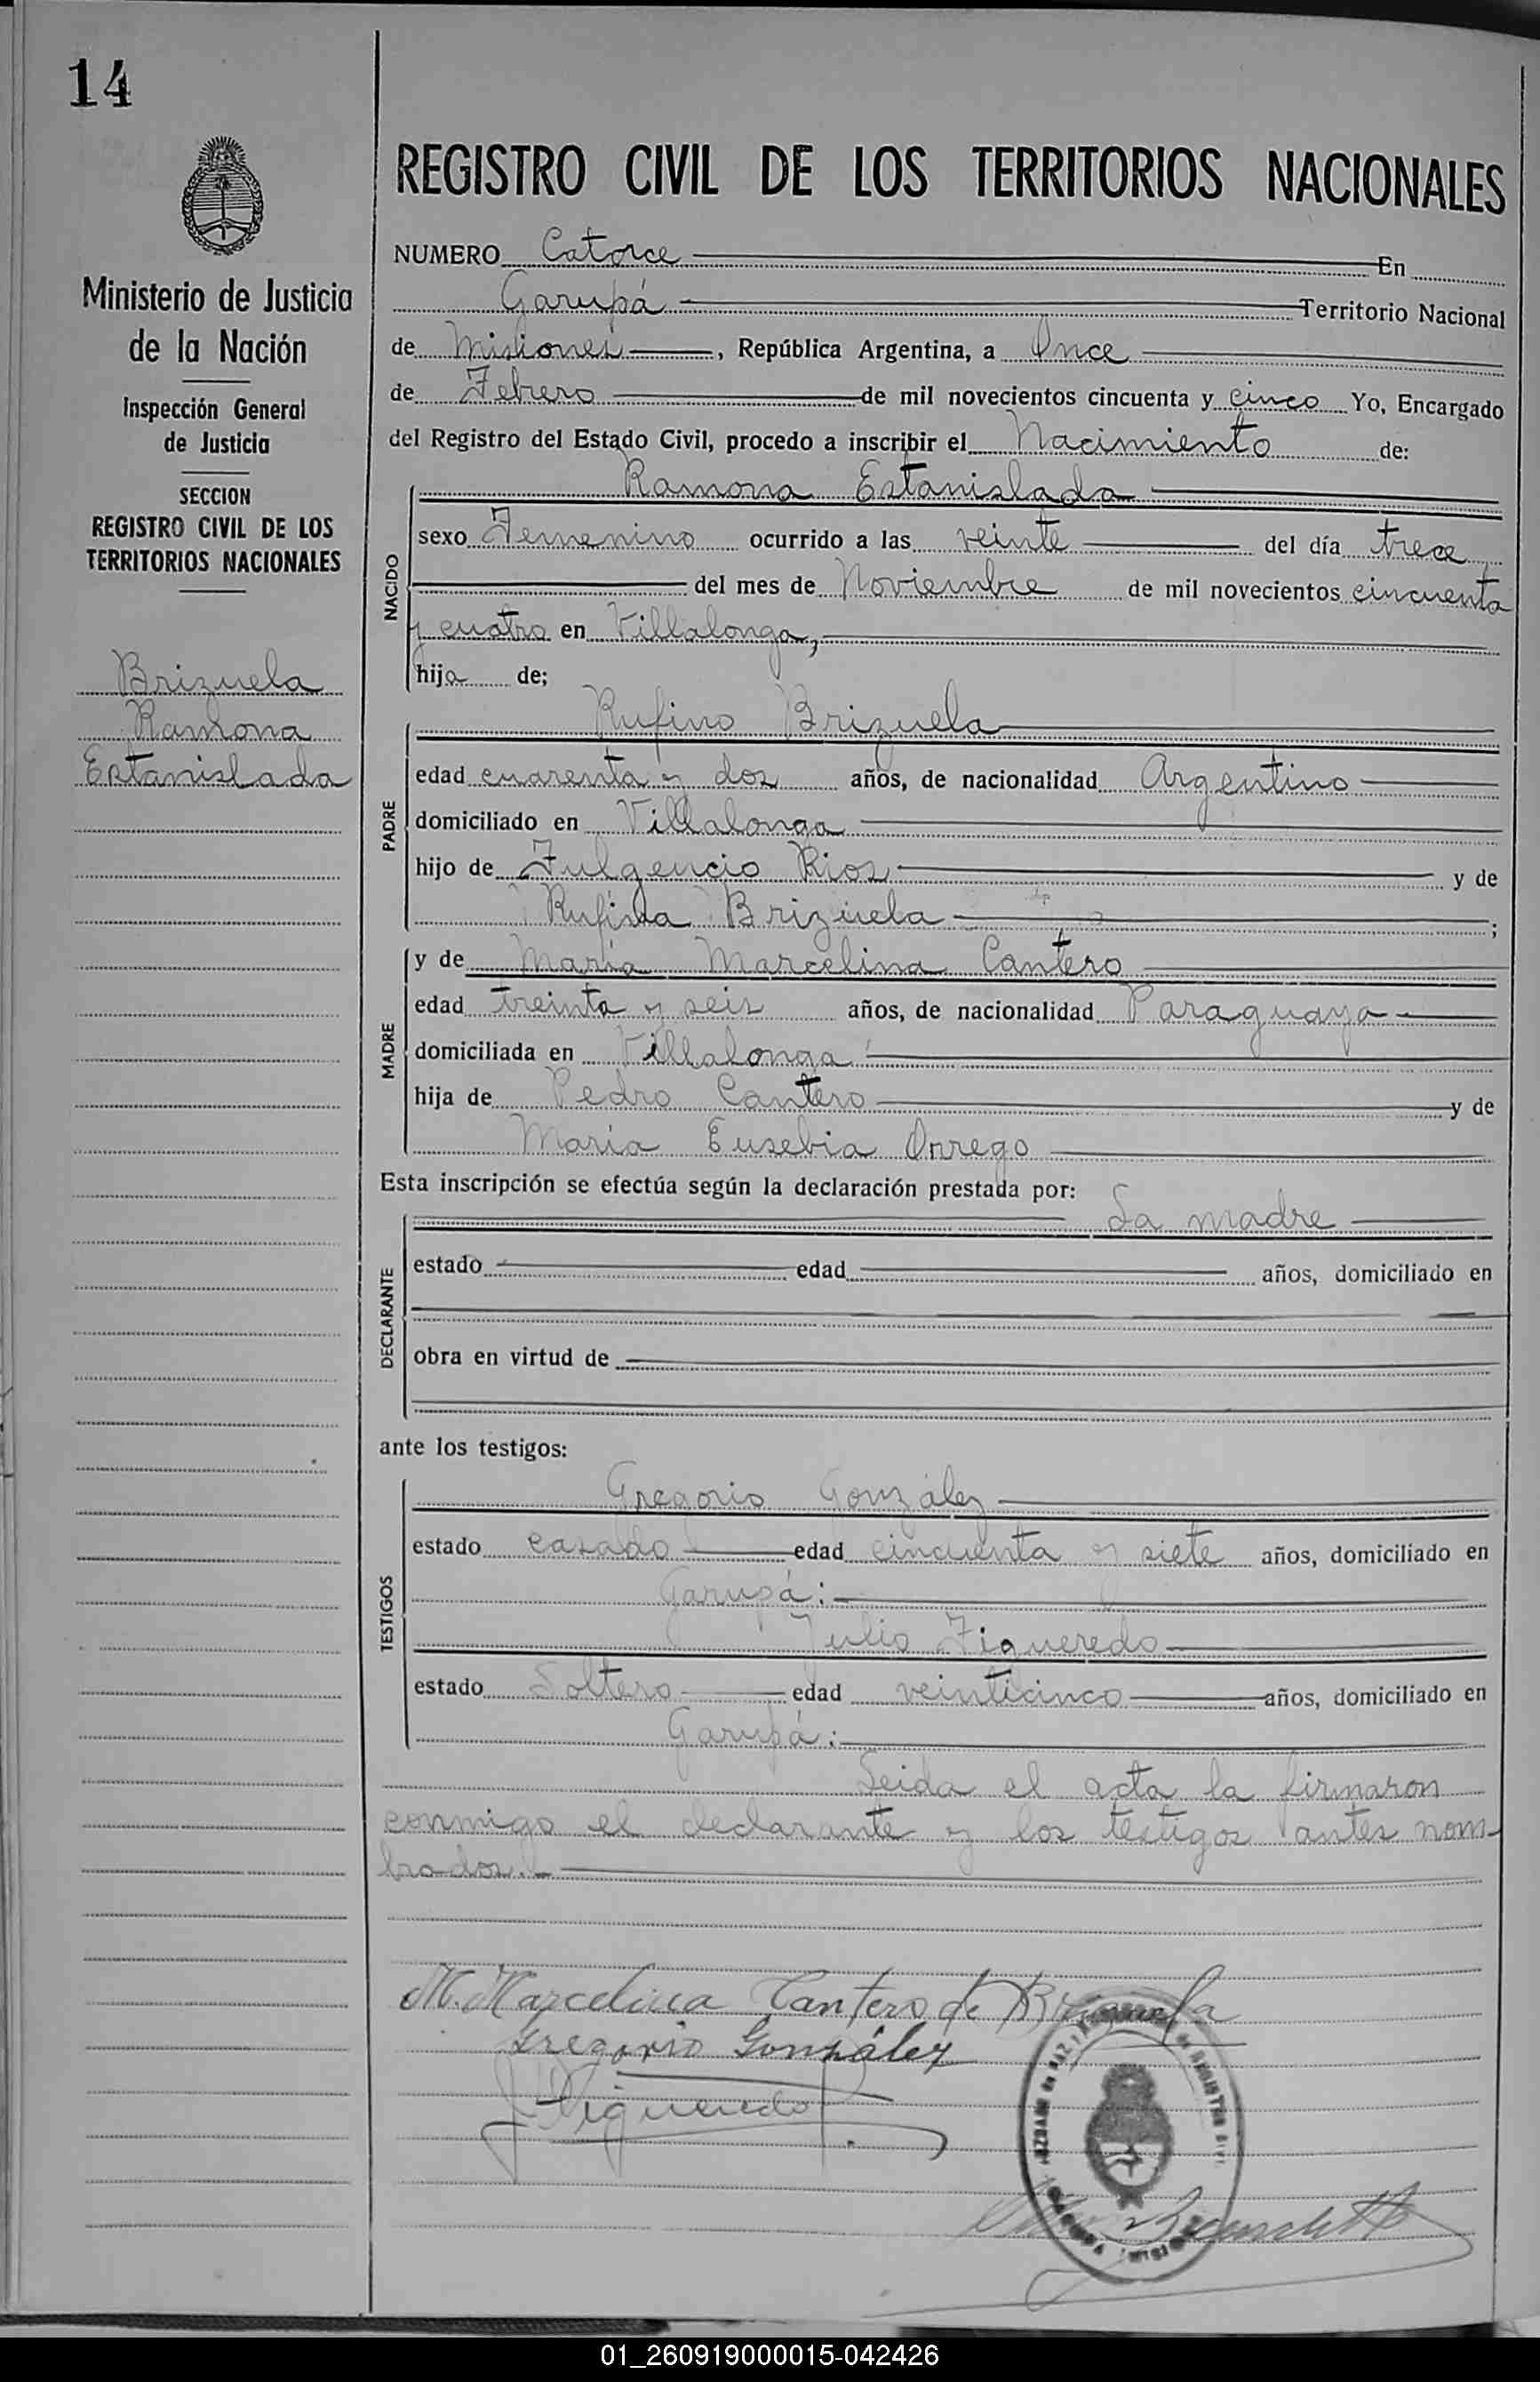 14
Ministerio de Justicia
de la Nación
Inspección General
de Justicia
SECCION
REGISTRO CIVIL DE LOS
TERRITORIOS NACIONALES
Brizuela
Ramona
Estanislada
REGISTRO CIVIL DE LOS TERRITORIOS NACIONALES
NUMERO Catorce En
Garupá Territorio Nacional
de Misiones, República Argentina, a Once
de Febrero de mil novecientos cincuenta y cinco Yo, Encargado
del Registro del Estado Civil, procedo a inscribir el Nacimiento de:
NACIDO
Ramona Estanislada
sexo Femenino ocurrido a las veinte del día trece
del mes de Noviembre de mil novecientos cincuenta
y cuatro en Villalonga,
hija de;
PADRE
Rufino Brizuela
edad cuarenta y dos años, de nacionalidad Argentino
domiciliado en Villalonga
hijo de Fulgencio Rios y de
Rufina Brizuela ;
MADRE
y de María Marcelina Cantero
edad treinta y seis años, de nacionalidad Paraguaya
domiciliada en Villalonga
hija de Pedro Cantero y de
María Eusebia Orrego
Esta inscripción se efectúa según la declaración prestada por:
DECLARANTE
La madre
estado edad años, domiciliado en
obra en virtud de
ante los testigos:
TESTIGOS
Gregorio González
estado casado edad cincuenta y siete años, domiciliado en
Garupá:
Julio Figueredo
estado Soltero edad veinticinco años, domiciliado en
Garupá:
Leida el acta la firmaron
conmigo el declarante y los testigos antes nom-
brados.-
M. Marcelina Cantero de Brizuela
Gregorio González
J Figueredo
JUZGADO de PAZ y REGISTRO
01_260919000015-042426